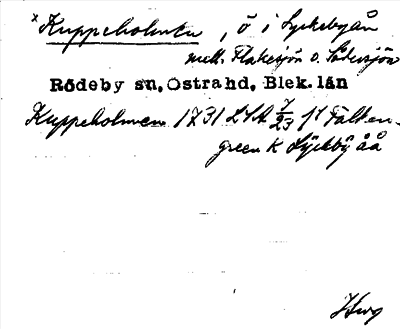 x Kuppeholmen, ö i Lyckebyån
mell. Flakesjön o. Säversjön
Rödeby sn, Östra hd, Blek. län
Kuppeholmen 1731 LSA 7/23 f1 Falken-
green K Lÿckbÿ åå
Hwg